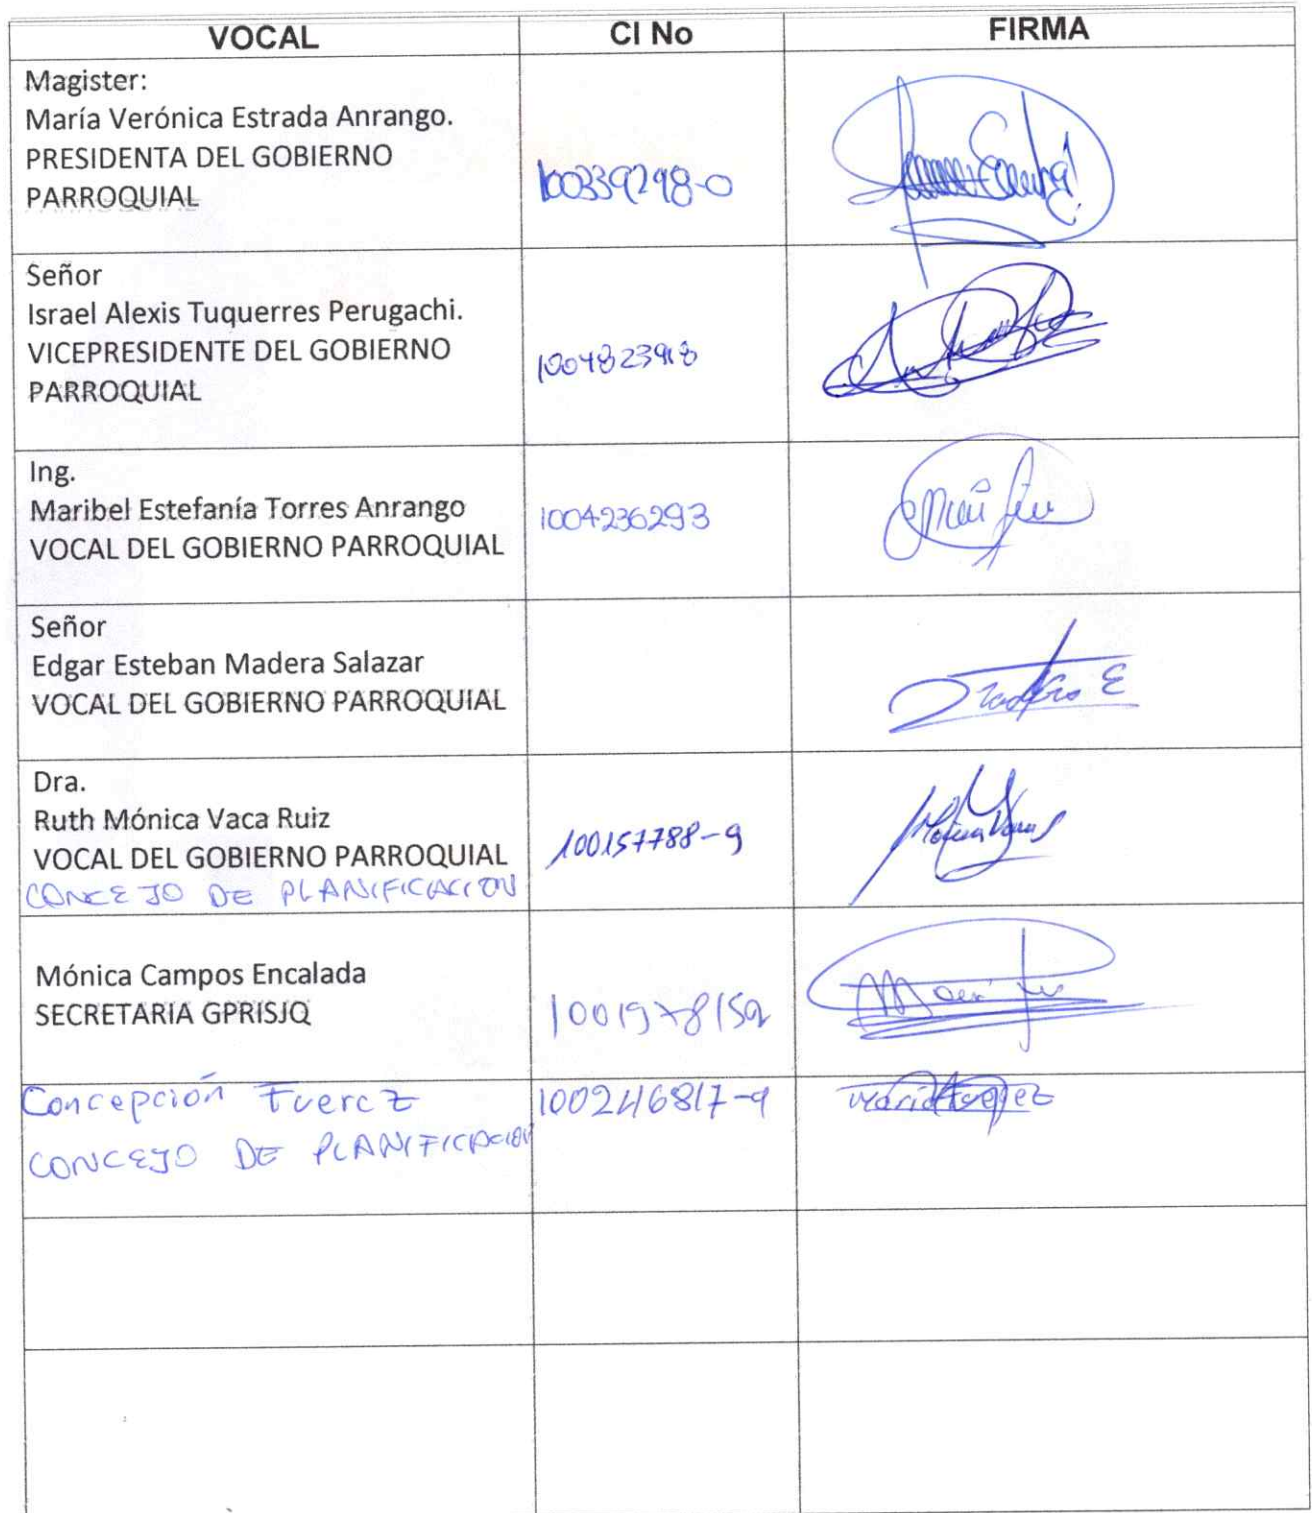 VOCAL CI No FIRMA
Magister:
María Verónica Estrada Anrango.
PRESIDENTA DEL GOBIERNO
PARROQUIAL
100339298-0
Señor
Israel Alexis Tuquerres Perugachi.
VICEPRESIDENTE DEL GOBIERNO
PARROQUIAL
Ing.
Maribel Estefanía Torres Anrango
VOCAL DEL GOBIERNO PARROQUIAL
1004236293
Señor
Edgar Esteban Madera Salazar
VOCAL DEL GOBIERNO PARROQUIAL
Dra.
Ruth Mónica Vaca Ruiz
VOCAL DEL GOBIERNO PARROQUIAL
CONCEJO DE PLANIFICACION
100157788-9
Mónica Campos Encalada
SECRETARIA GPRISJQ
Concepción
CONCEJO DE PLANIFICACION
100246817-9